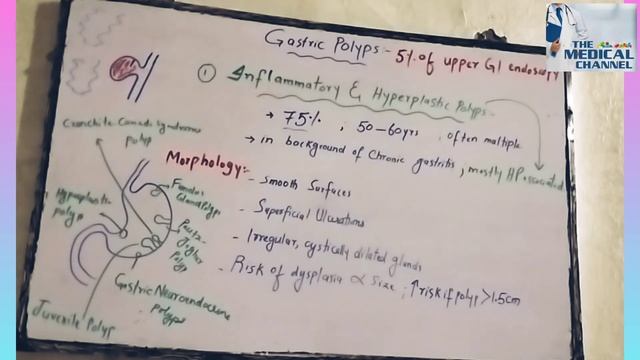 Gastric Polyps:- 5% of upper GI endoscopy
THE MEDICAL CHANNEL
① Inflammatory & Hyperplastic Polyps:-
→ 75% , 50-60yrs , often multiple
→ in background of Chronic gastritis , mostly HP associated
Morphology:-
- Smooth Surfaces
- Superficial Ulcerations
- Irregular, cystically dilated glands
- Risk of dysplasia ∝ size ; ↑risk if polyp >1.5cm
Cronchite Canada Syndrome
polyp
Fundic
Gland Polyp
Hyperplastic
polyp
Peutz-
Jegher
Polyp
Gastric Neuroendocrine
Polyps
Juvenile Polyp